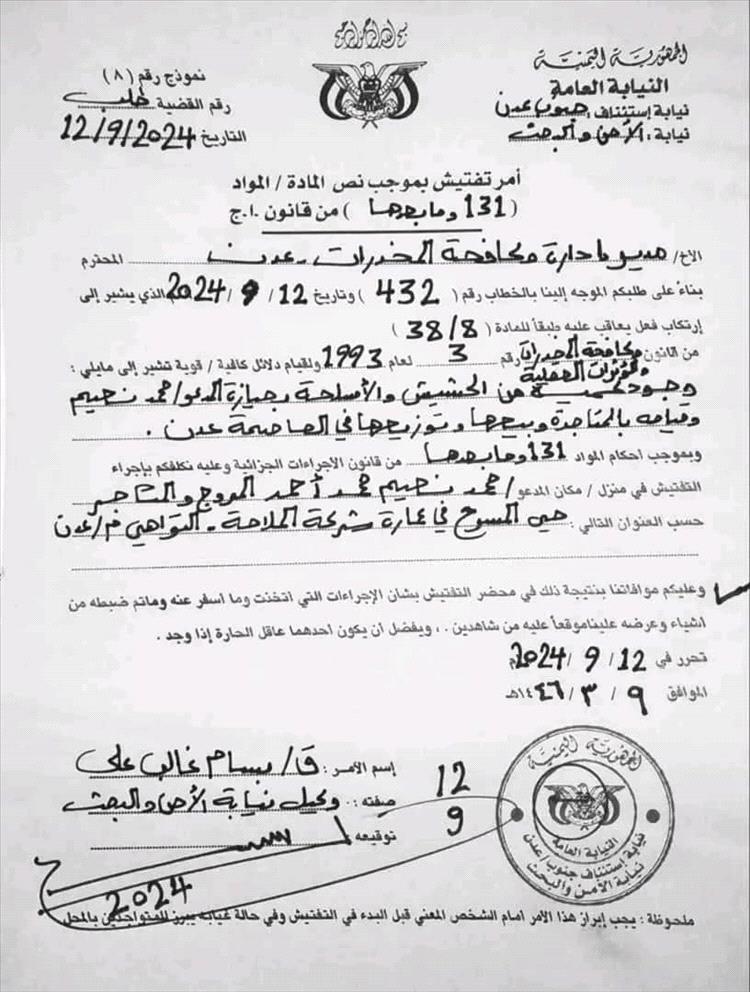 بسم الله الرحمن الرحيم
الجمهورية اليمنية
النيابة العامة
نيابة إستئناف: جنوب عدن
نيابة: الأمن والبحث
نموذج رقم (٨)
رقم القضية طلب
التاريخ 12/9/2024
أمر تفتيش بموجب نص المادة / المواد
(131 وما بعدها) من قانون .ا.ج
الاخ/ مدير إدارة مكافحة المخدرات - عدن المحترم
بناءً على طلبكم الموجه إلينا بالخطاب رقم (432) وتاريخ 12/9/2024م الذي يشير إلى
إرتكاب فعل يعاقب عليه طبقاً للمادة (38/8)
من قانون مكافحة المخدرات والمؤثرات العقلية رقم 3 لعام 1993 ولقيام دلائل كافية / قوية تشير إلى مايلي :
وجود كمية من الحشيش والأسلحة بحيازة المدعو/ محمد نعيم
وقيامه بالمتاجرة وبيعها وتوزيعها في العاصمة عدن .
وبموجب أحكام المواد 131 وما بعدها من قانون الإجراءات الجزائية وعليه نكلفكم بإجراء
التفتيش في منزل / مكان المدعو / محمد نعيم محمد أحمد المروج والتاجر
حسب العنوان التالي : حي المسبح في عمارة شركة الملاحة - التواهي م/عدن
وعليكم موافاتنا بنتيجة ذلك في محضر التفتيش بشان الإجراءات التي اتخذت وما اسفر عنه وماتم ضبطه من
اشياء وعرضه علينا موقعاً عليه من شاهدين . ، ويفضل أن يكون أحدهما عاقل الحارة إذا وجد .
تحرر في 12/9/2024م
الموافق ٩/٣/١٤٤٦هـ
إسم الآمر : ق/ بسام غالب علي
صفته : وكيل نيابة الأمن والبحث
توقيعه
12
9
2024
الجمهورية اليمنية
النيابة العامة
نيابة إستئناف جنوب/عدن
نيابة الأمن والبحث
ملحوظة : يجب إبراز هذا الأمر امام الشخص المعني قبل البدء في التفتيش وفي حالة غيابه يبرز للمتواجدين بالمحل